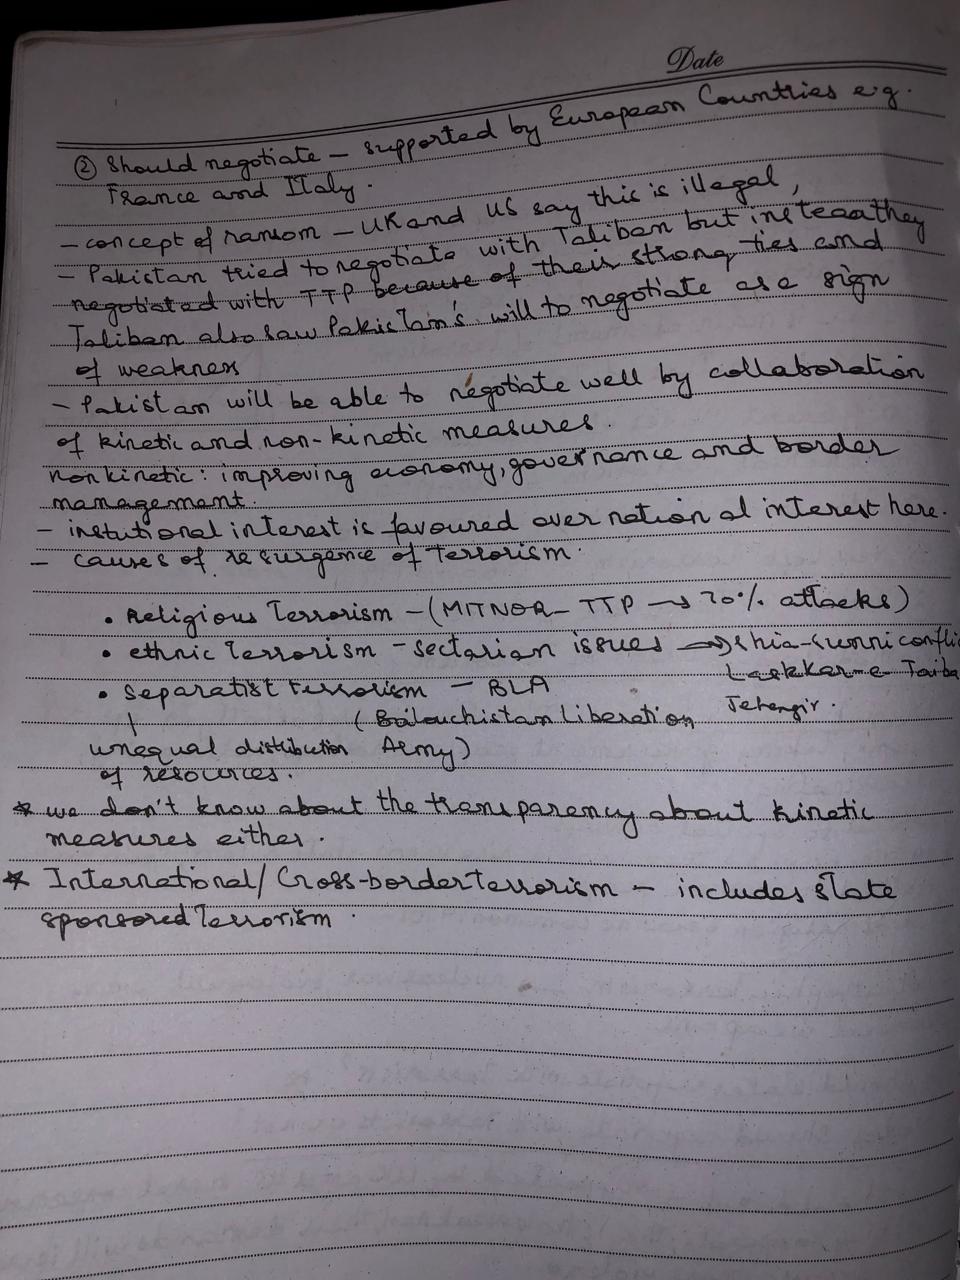 Date
② Should negotiate – supported by European Countries e.g.
France and Italy.
– concept of ransom – UK and US say this is illegal,
– Pakistan tried to negotiate with Taliban but instead they
negotiated with TTP because of their strong ties and
Taliban also saw Pakistan's will to negotiate as a sign
of weakness
– Pakistan will be able to negotiate well by collaboration
of kinetic and non-kinetic measures.
non kinetic: improving economy, governance and border
management.
– instutional interest is favoured over national interest here.
– causes of resurgence of terrorism.
• Religious Terrorism – ( TTP → 70% attacks)
• ethnic Terrorism – sectarian issues → shia-sunni conflic
Lashkar-e Taiba
• Separatist Terrorism – BLA
Jehengir.
(Balouchistan Liberation
unequal distribution Army)
of resources.
* we don't know about the transparency about kinetic
measures either.
* International/Cross-border terrorism – includes state
sponsored Terrorism.